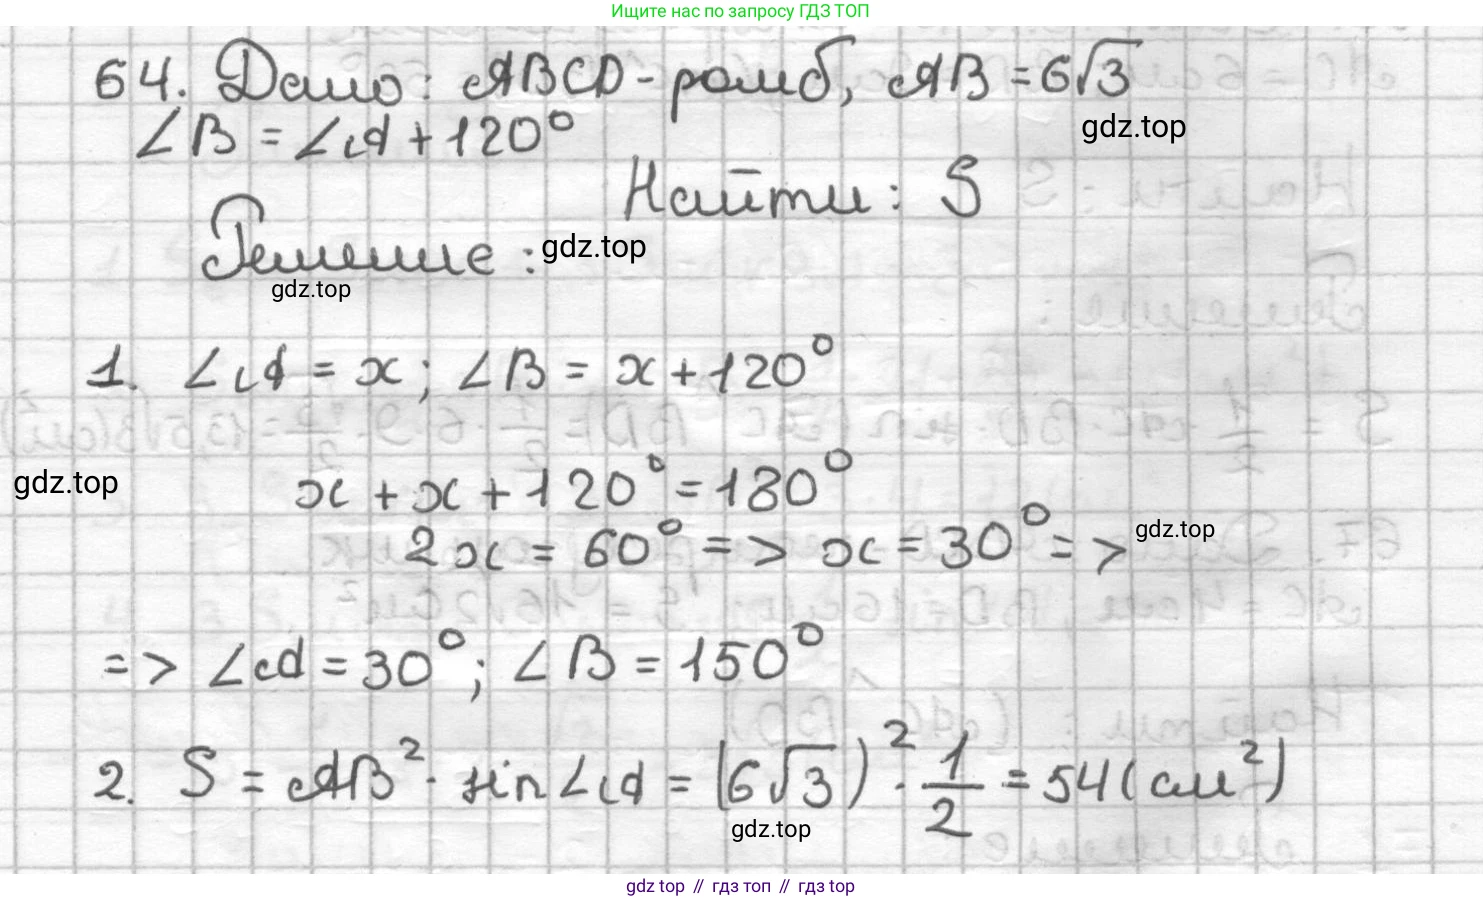 Ищите нас по запросу ГДЗ ТОП
64. Дано: ABCD - ромб, AB = 6√3
∠B = ∠A + 120°
gdz.top
Найти: S
Решение:
gdz.top
gdz.top
1. ∠A = x; ∠B = x + 120°
gdz.top
x + x + 120° = 180°
2x = 60° => x = 30° =>
gdz.top
=> ∠A = 30°; ∠B = 150°
2. S = AB² · sin∠A = (6√3)² · 1/2 = 54 (см²)
gdz.top
gdz top // гдз топ // gdz top